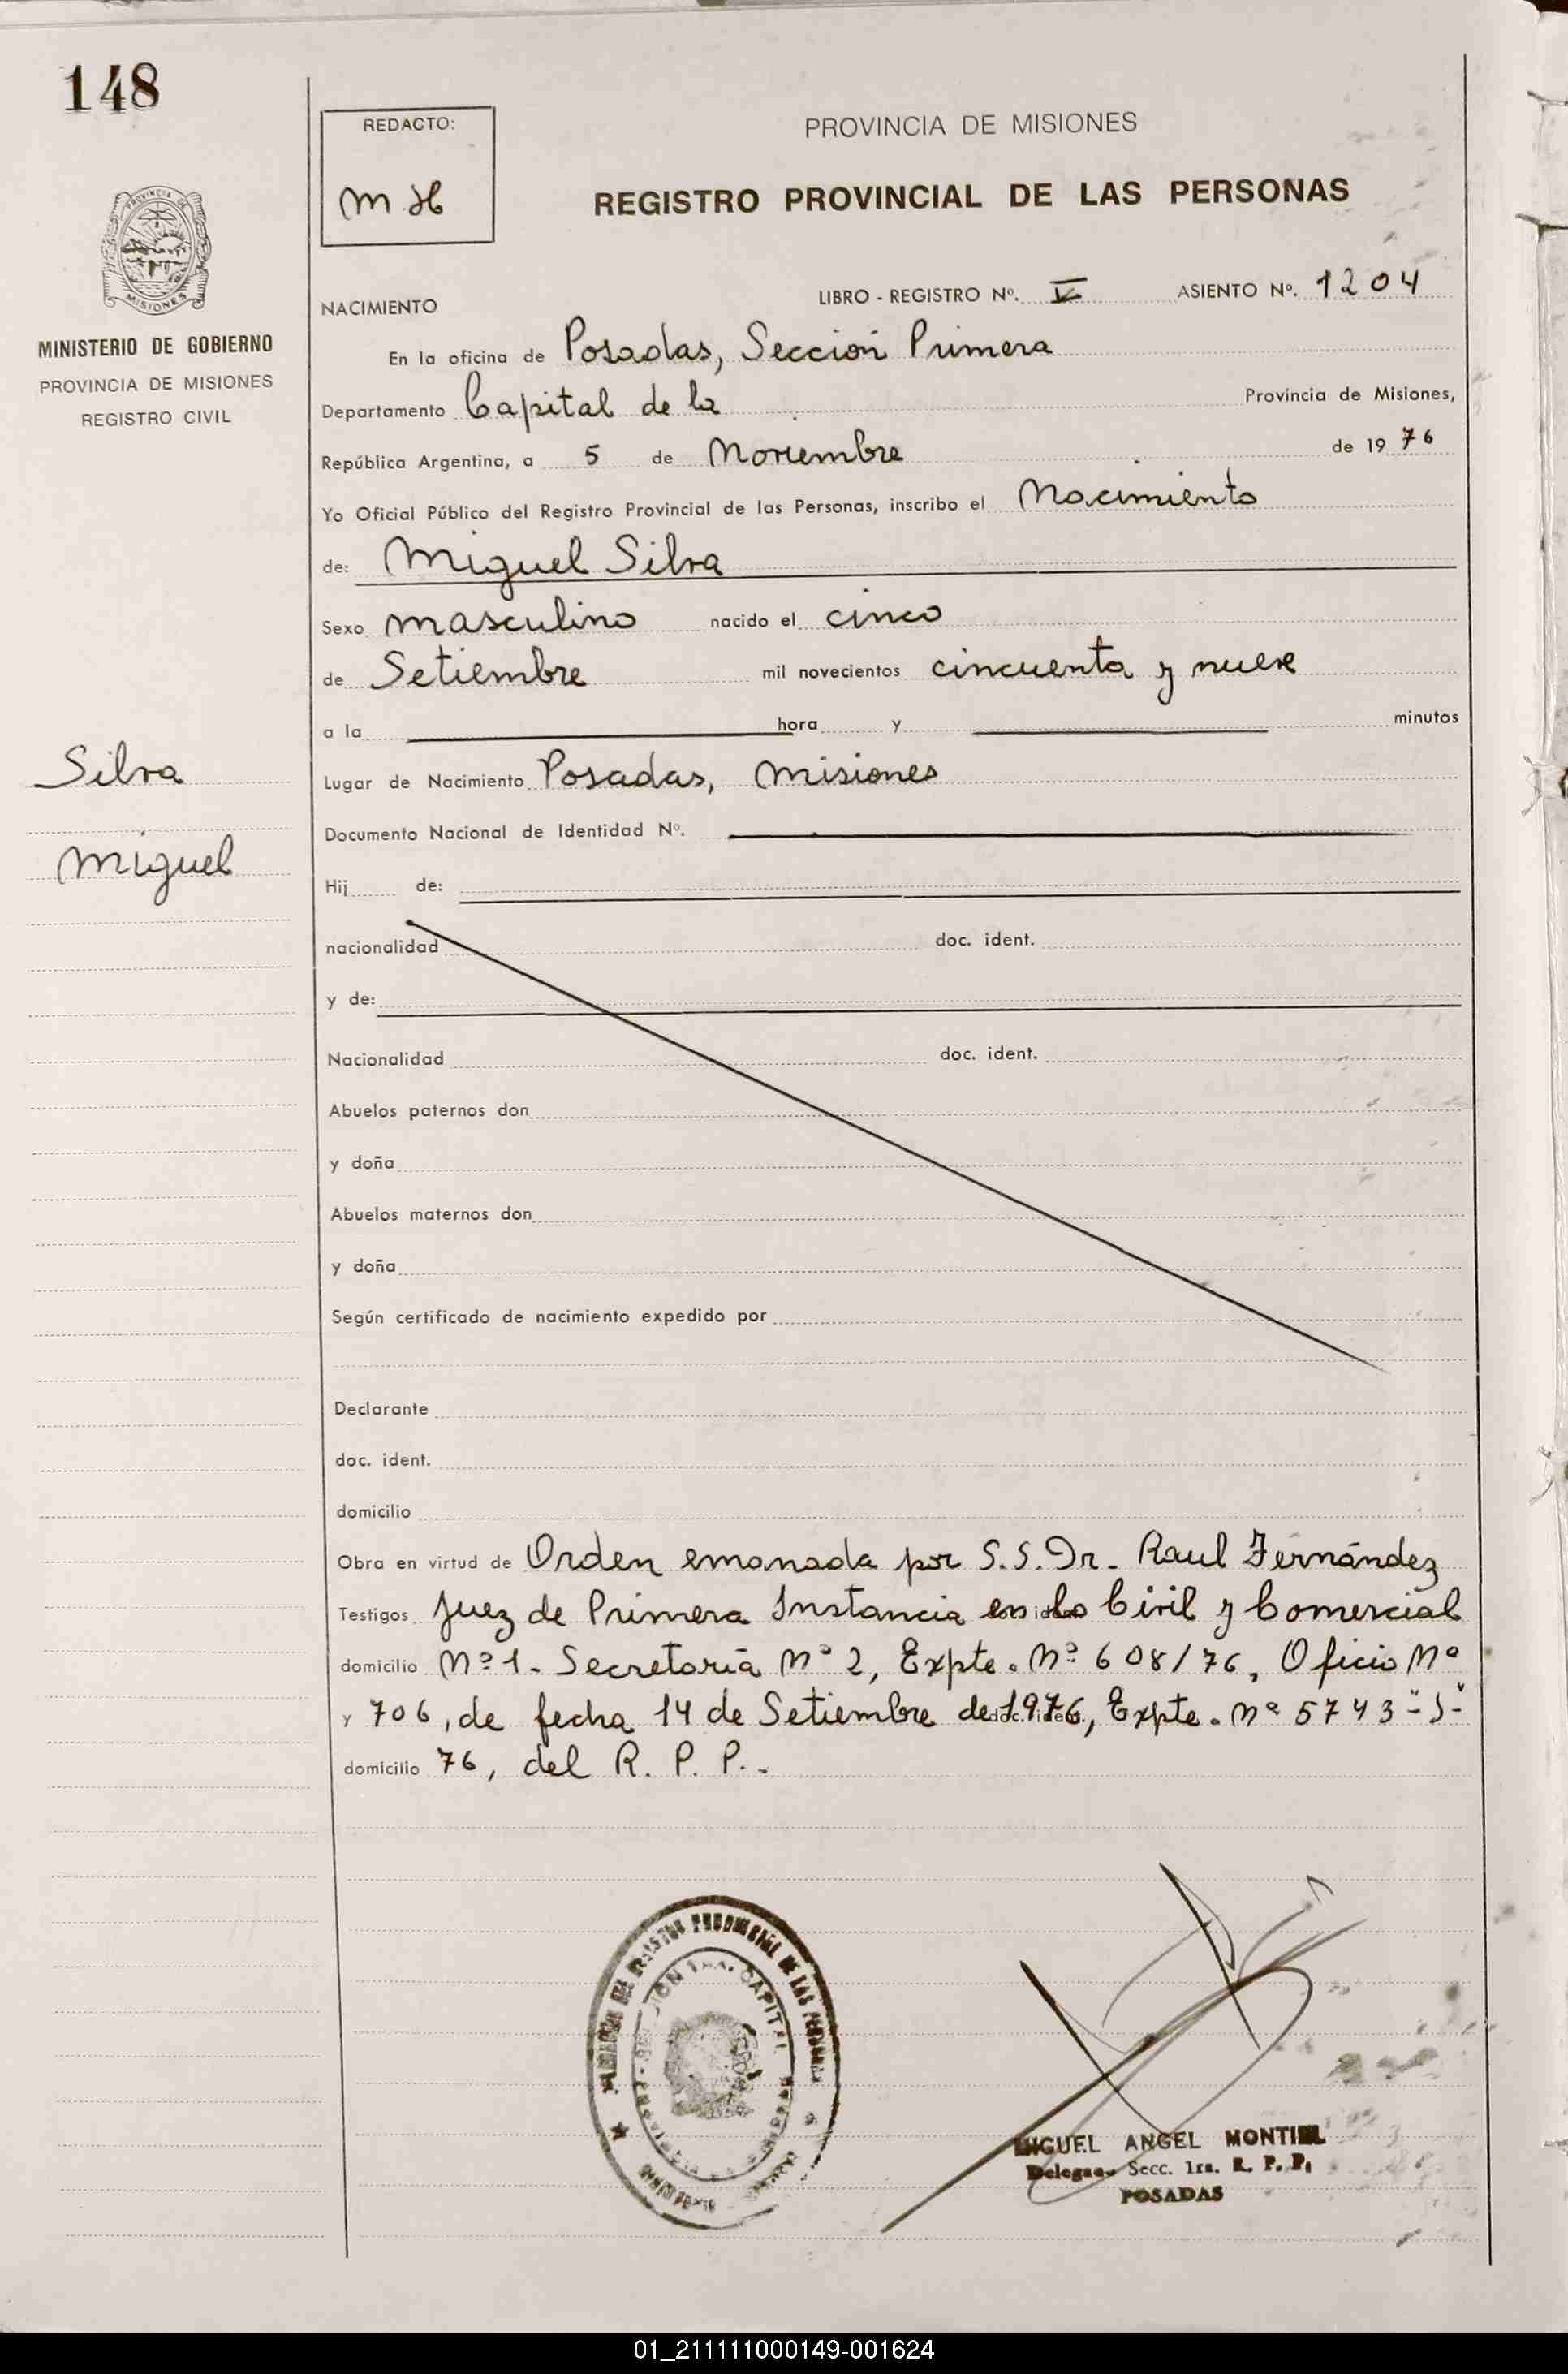 148
REDACTO:
M H
PROVINCIA DE MISIONES
REGISTRO PROVINCIAL DE LAS PERSONAS
PROVINCIA DE
MISIONES
MINISTERIO DE GOBIERNO
PROVINCIA DE MISIONES
REGISTRO CIVIL
NACIMIENTO LIBRO - REGISTRO Nº. V ASIENTO Nº. 1204
En la oficina de Posadas, Sección Primera
Departamento Capital de la Provincia de Misiones,
República Argentina, a 5 de Noviembre de 1976
Yo Oficial Público del Registro Provincial de las Personas, inscribo el Nacimiento
de: Miguel Silva
Sexo masculino nacido el cinco
de Setiembre mil novecientos cincuenta y nueve
a la hora y minutos
Silva
Miguel
Lugar de Nacimiento Posadas, Misiones
Documento Nacional de Identidad Nº.
Hij de:
nacionalidad doc. ident.
y de:
Nacionalidad doc. ident.
Abuelos paternos don
y doña
Abuelos maternos don
y doña
Según certificado de nacimiento expedido por
Declarante
doc. ident.
domicilio
Obra en virtud de Orden emanada por S.S. Dr. Raul Fernández
Testigos Juez de Primera Instancia en lo Civil y Comercial
domicilio Nº 1. Secretaría Nº 2, Expte. Nº 608/76, Oficio Nº
y 706, de fecha 14 de Setiembre de 1976, Expte. Nº 5743-"S"-
domicilio 76, del R. P. P..
PROVINCIAL DE LAS PERSONAS
CAPITAL
MIGUEL ANGEL MONTIEL
Secc. 1ra. R. P. P.
POSADAS
01_211111000149-001624